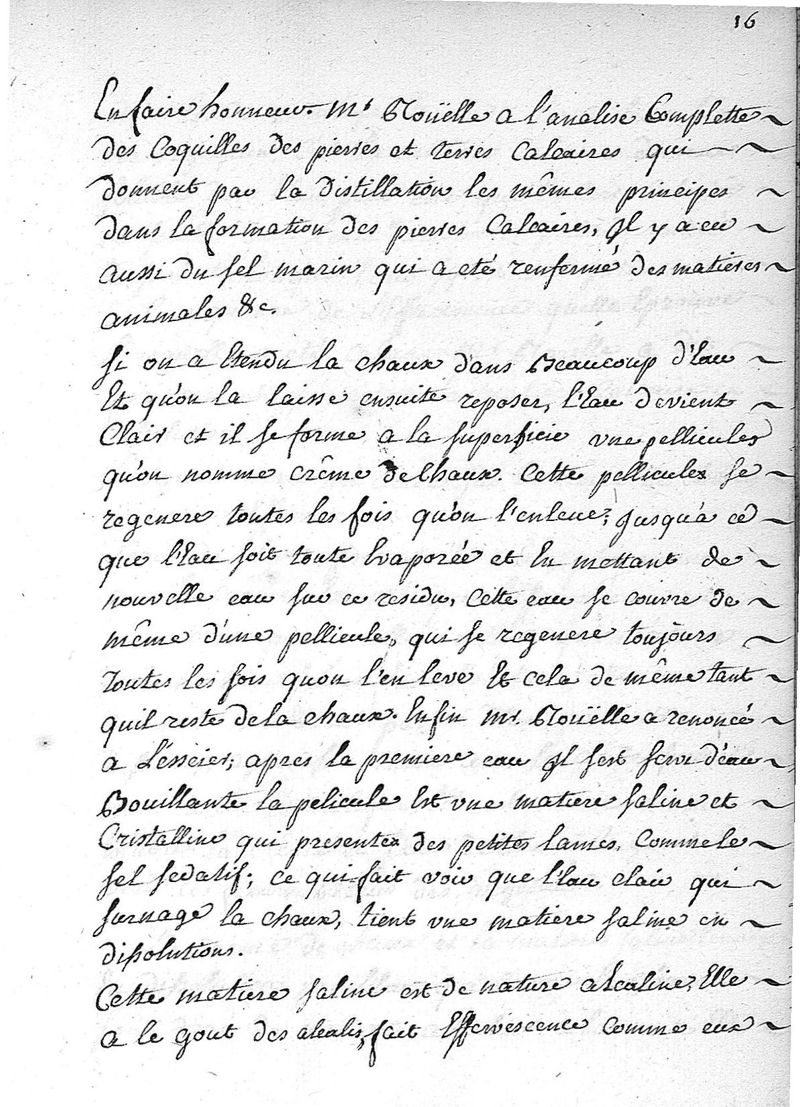 16
En faire honneur. Mr Rouëlle a l'analise Complette
des Coquilles des pierres et terres Calcaires qui
donnent par la Distillation les mêmes principes
dans la formation des pierres Calcaires, Il y a eu
aussi du sel marin qui a eté renfermé des matieres
animales &c.
si on a Etendu la chaux dans Beaucoup d'Eau
Et qu'on la laisse ensuite reposer, l'Eau devient
Clair et il se forme a la superficie une pellicules
qu'on nomme crême de Chaux. Cette pellicule se
regenere toutes les fois qu'on l'enleve; jusqu'a ce
que l'Eau soit toute Evaporée et En mettant de
nouvelle eau sur ce residu, Cette eau se couvre de
même d'une pellicule, qui se regenere toujours
Toutes les fois quon l'en leve Et cela de même tant
quil reste de la chaux. Enfin mr. Rouëlle a renoncé
a L'ésseier; apres la premiere eau Il sest servi d'eau
Bouillante la pelicule Est une matiere saline et
Cristalline qui presente des petites lames, Comme le
sel sedatif; ce qui fait voir que l'Eau clair qui
surnage la chaux, tient une matiere saline en
dissolutions.
Cette matiere saline est de nature alcaline, Elle
a le gout des alcalis, fait Effervescence comme eux